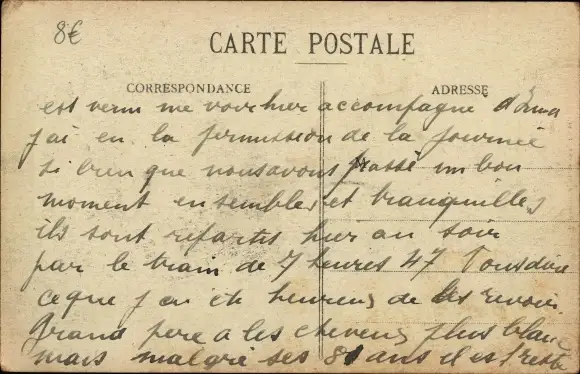 8€
CARTE POSTALE
CORRESPONDANCE ADRESSE
est venu me voir hier accompagné d'
j'ai eu la permission de la journée
si bien que nous avons passé un bon
moment ensemble et tranquilles
ils sont repartis hier au soir
par le train de 7 heures 47
ce que j'ai été heureux de les revoir.
Grand père a les cheveux plus blancs
mais malgré ses 81 ans il est reste